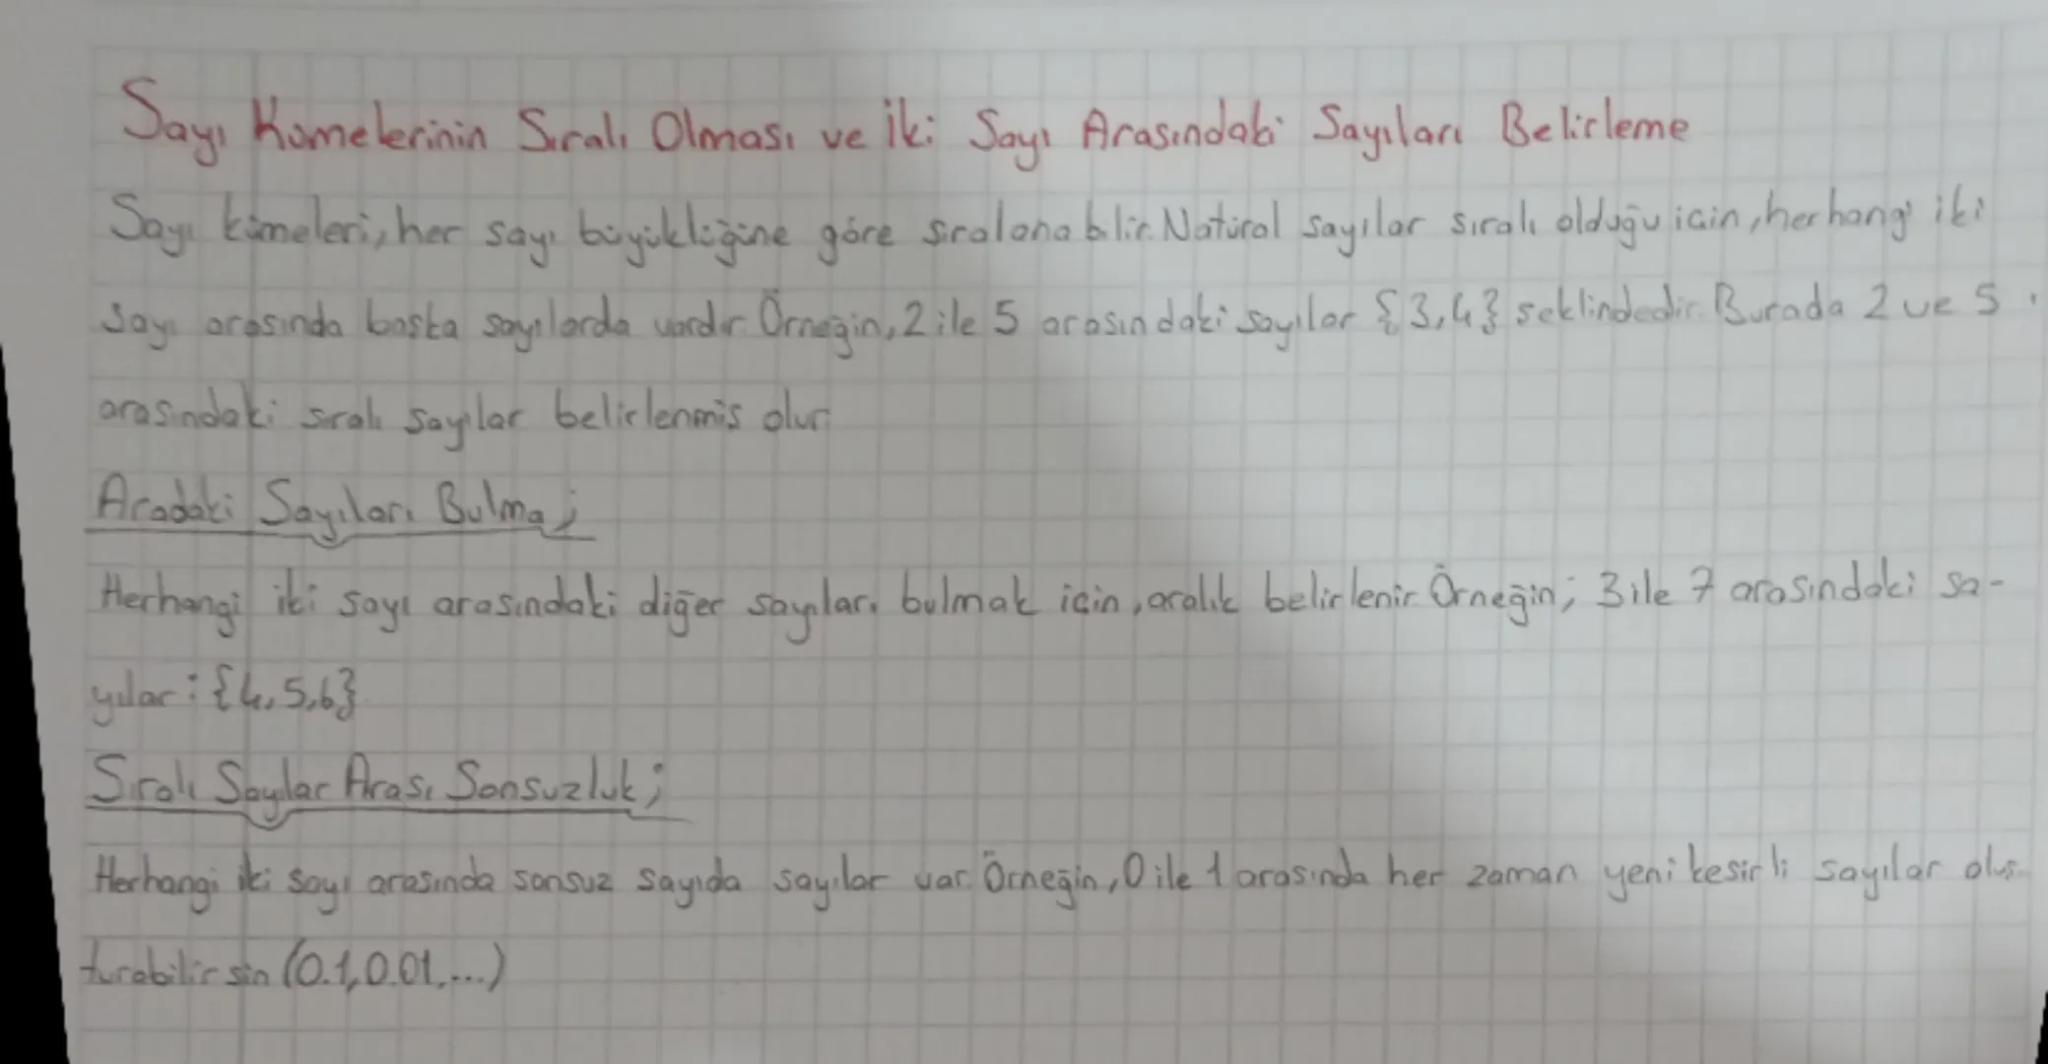 Sayı Kümelerinin Sıralı Olması ve İki Sayı Arasındaki Sayıları Belirleme
Sayı kümeleri, her sayı büyüklüğüne göre sıralanabilir. Natural sayılar sıralı olduğu için, herhangi iki
sayı arasında başka sayılarda vardır. Örneğin, 2 ile 5 arasındaki sayılar {3,4} şeklindedir. Burada 2 ve 5
arasındaki sıralı sayılar belirlenmiş olur.
Aradaki Sayıları Bulma;
Herhangi iki sayı arasındaki diğer sayıları bulmak için, aralık belirlenir. Örneğin; 3 ile 7 arasındaki sa-
yılar: {4,5,6}
Sıralı Sayılar Arası Sonsuzluk;
Herhangi iki sayı arasında sonsuz sayıda sayılar var. Örneğin, 0 ile 1 arasında her zaman yeni kesirli sayılar oluş-
turabilirsin (0.1, 0.01,...)